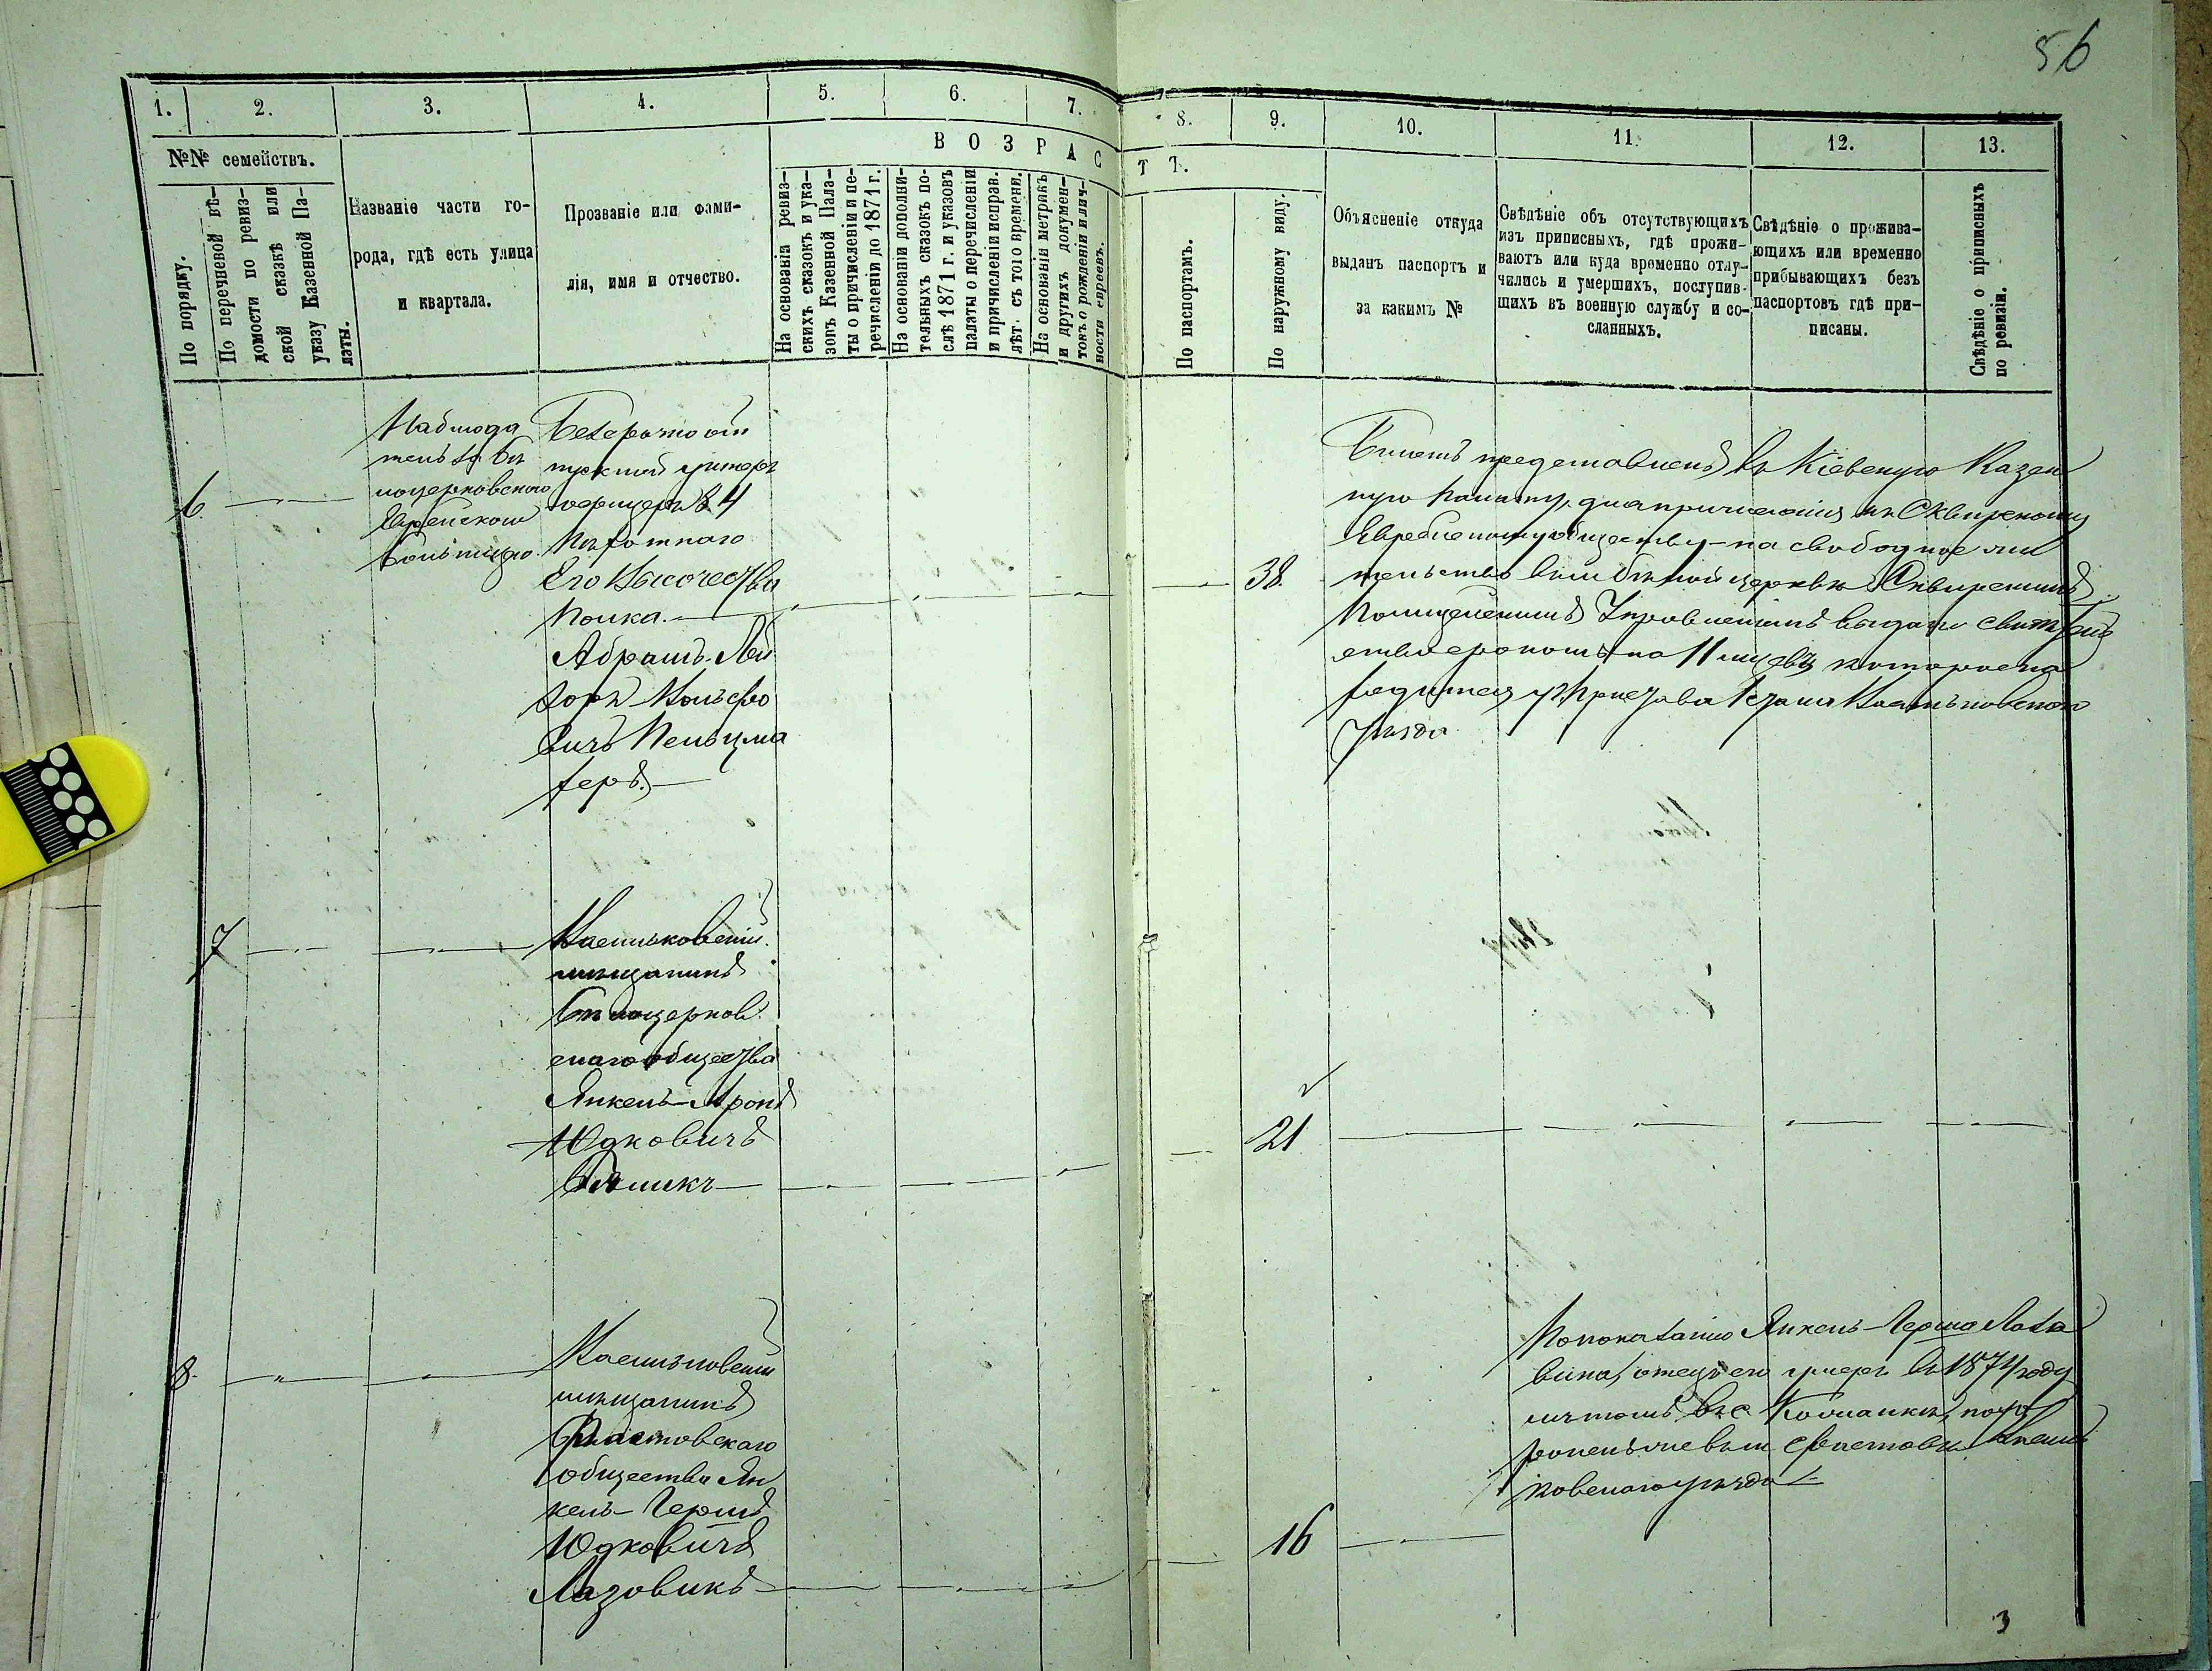 56
1. 2. 3. 4. 5. 6. 7. 8. 9. 10. 11. 12. 13.
№№ семействъ.
По порядку.
По перечневой вѣ-
домости по ревиз-
ской сказкѣ или
указу Казенной Па-
латы.
Названіе части го-
рода, гдѣ есть улица
и квартала.
Прозваніе или фами-
лія, имя и отчество.
ВОЗРАСТЪ.
На основаніи ревиз-
скихъ сказокъ и ука-
зовъ Казенной Пала-
ты о причисленіи и пе-
речисленіи до 1871 г.
На основаніи дополни-
тельныхъ сказокъ по-
слѣ 1871 г. и указовъ
палаты о перечисленіи
и причисленіи исправ.
лѣт. съ того времени.
На основаніи метрикъ
и другихъ докумен-
товъ о рожденіи и лич-
ности евреевъ.
По паспортамъ.
По наружному виду.
Объясненіе откуда
выданъ паспортъ и
за какимъ №
Свѣдѣніе объ отсутствующихъ
изъ приписныхъ, гдѣ прожи-
ваютъ или куда временно отлу-
чились и умершихъ, поступив-
шихъ въ военную службу и со-
сланныхъ.
Свѣдѣніе о прожива-
ющихъ или временно
прибывающихъ безъ
паспортовъ гдѣ при-
писаны.
Свѣдѣніе о приписныхъ
по ревизіи.
6.
Наблюда
тель за Бѣ
лоцерковскою
Еврейскою
больницею.
Безсрочно от
пускной унтеръ
офицеръ 84
Пѣхотнаго
Его Высочества
Полка.
Абрамъ-Лей
зоръ Вольфо
вичъ Пельцма
херъ.
38.
Билетъ представленъ въ Кіевскую Казен
ную Палату, для причисленія къ Сквирскому
Еврейскому обществу - на свободное жи
тельство въ м. Бѣлой церкви Сквирскимъ
Полицейскимъ Управленіемъ выдано свидѣтель
ство срокомъ на 11 мѣсяцевъ которое на
ходится у Пристава 1 стана Васильковскаго
Уѣзда
7
Васильковскій
мѣщанинъ
Бѣлоцерков
скаго общества
Янкель-Аронъ
Юдковичъ
21
8.
Васильковскій
мѣщанинъ
Фастовскаго
общества Ян
кель-Гершъ
Юдковичъ
Лазовикъ
16
По показанію Янкель-Герша Лазо
вика, отецъ его умеръ въ 1874 году
лѣтомъ въ с. похо
роненъ же въ м. Фастовѣ Василь
ковскаго уѣзда
3